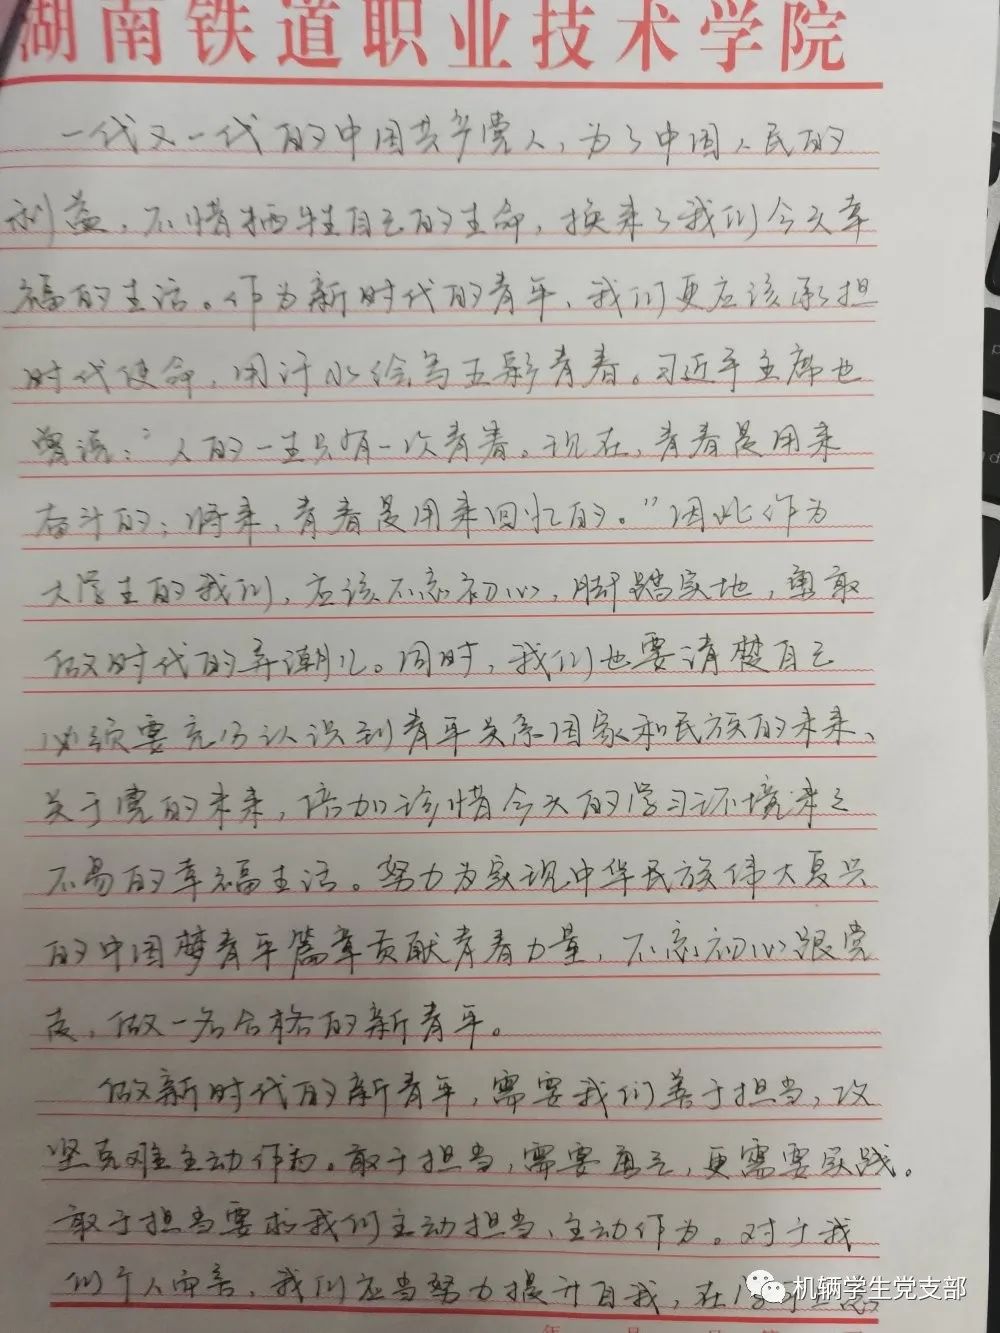 湖南铁道职业技术学院
一代又一代的中国共产党人，为了中国人民的
利益，不惜牺牲自己的生命，换来了我们今天幸
福的生活。作为新时代的青年，我们更应该承担
时代使命，用汗水绘写五彩青春。习近平主席也
曾说：“人的一生只有一次青春。现在，青春是用来
奋斗的；将来，青春是用来回忆的。”因此作为
大学生的我们，应该不忘初心，脚踏实地，勇敢
做时代的弄潮儿。同时，我们也要清楚自己
必须要充分认识到青年关系国家和民族的未来、
关于党的未来，倍加珍惜今天的学习环境来之
不易的幸福生活。努力为实现中华民族伟大复兴
的中国梦青年篇章贡献青春力量，不忘初心跟党
走，做一名合格的新青年。
做新时代的新青年，需要我们善于担当，攻
坚克难主动作为。敢于担当，需要勇气，更需要实践。
敢于担当要求我们主动担当、主动作为。对于我
们个人而言，我们应当努力提升自我，在
机辆学生党支部